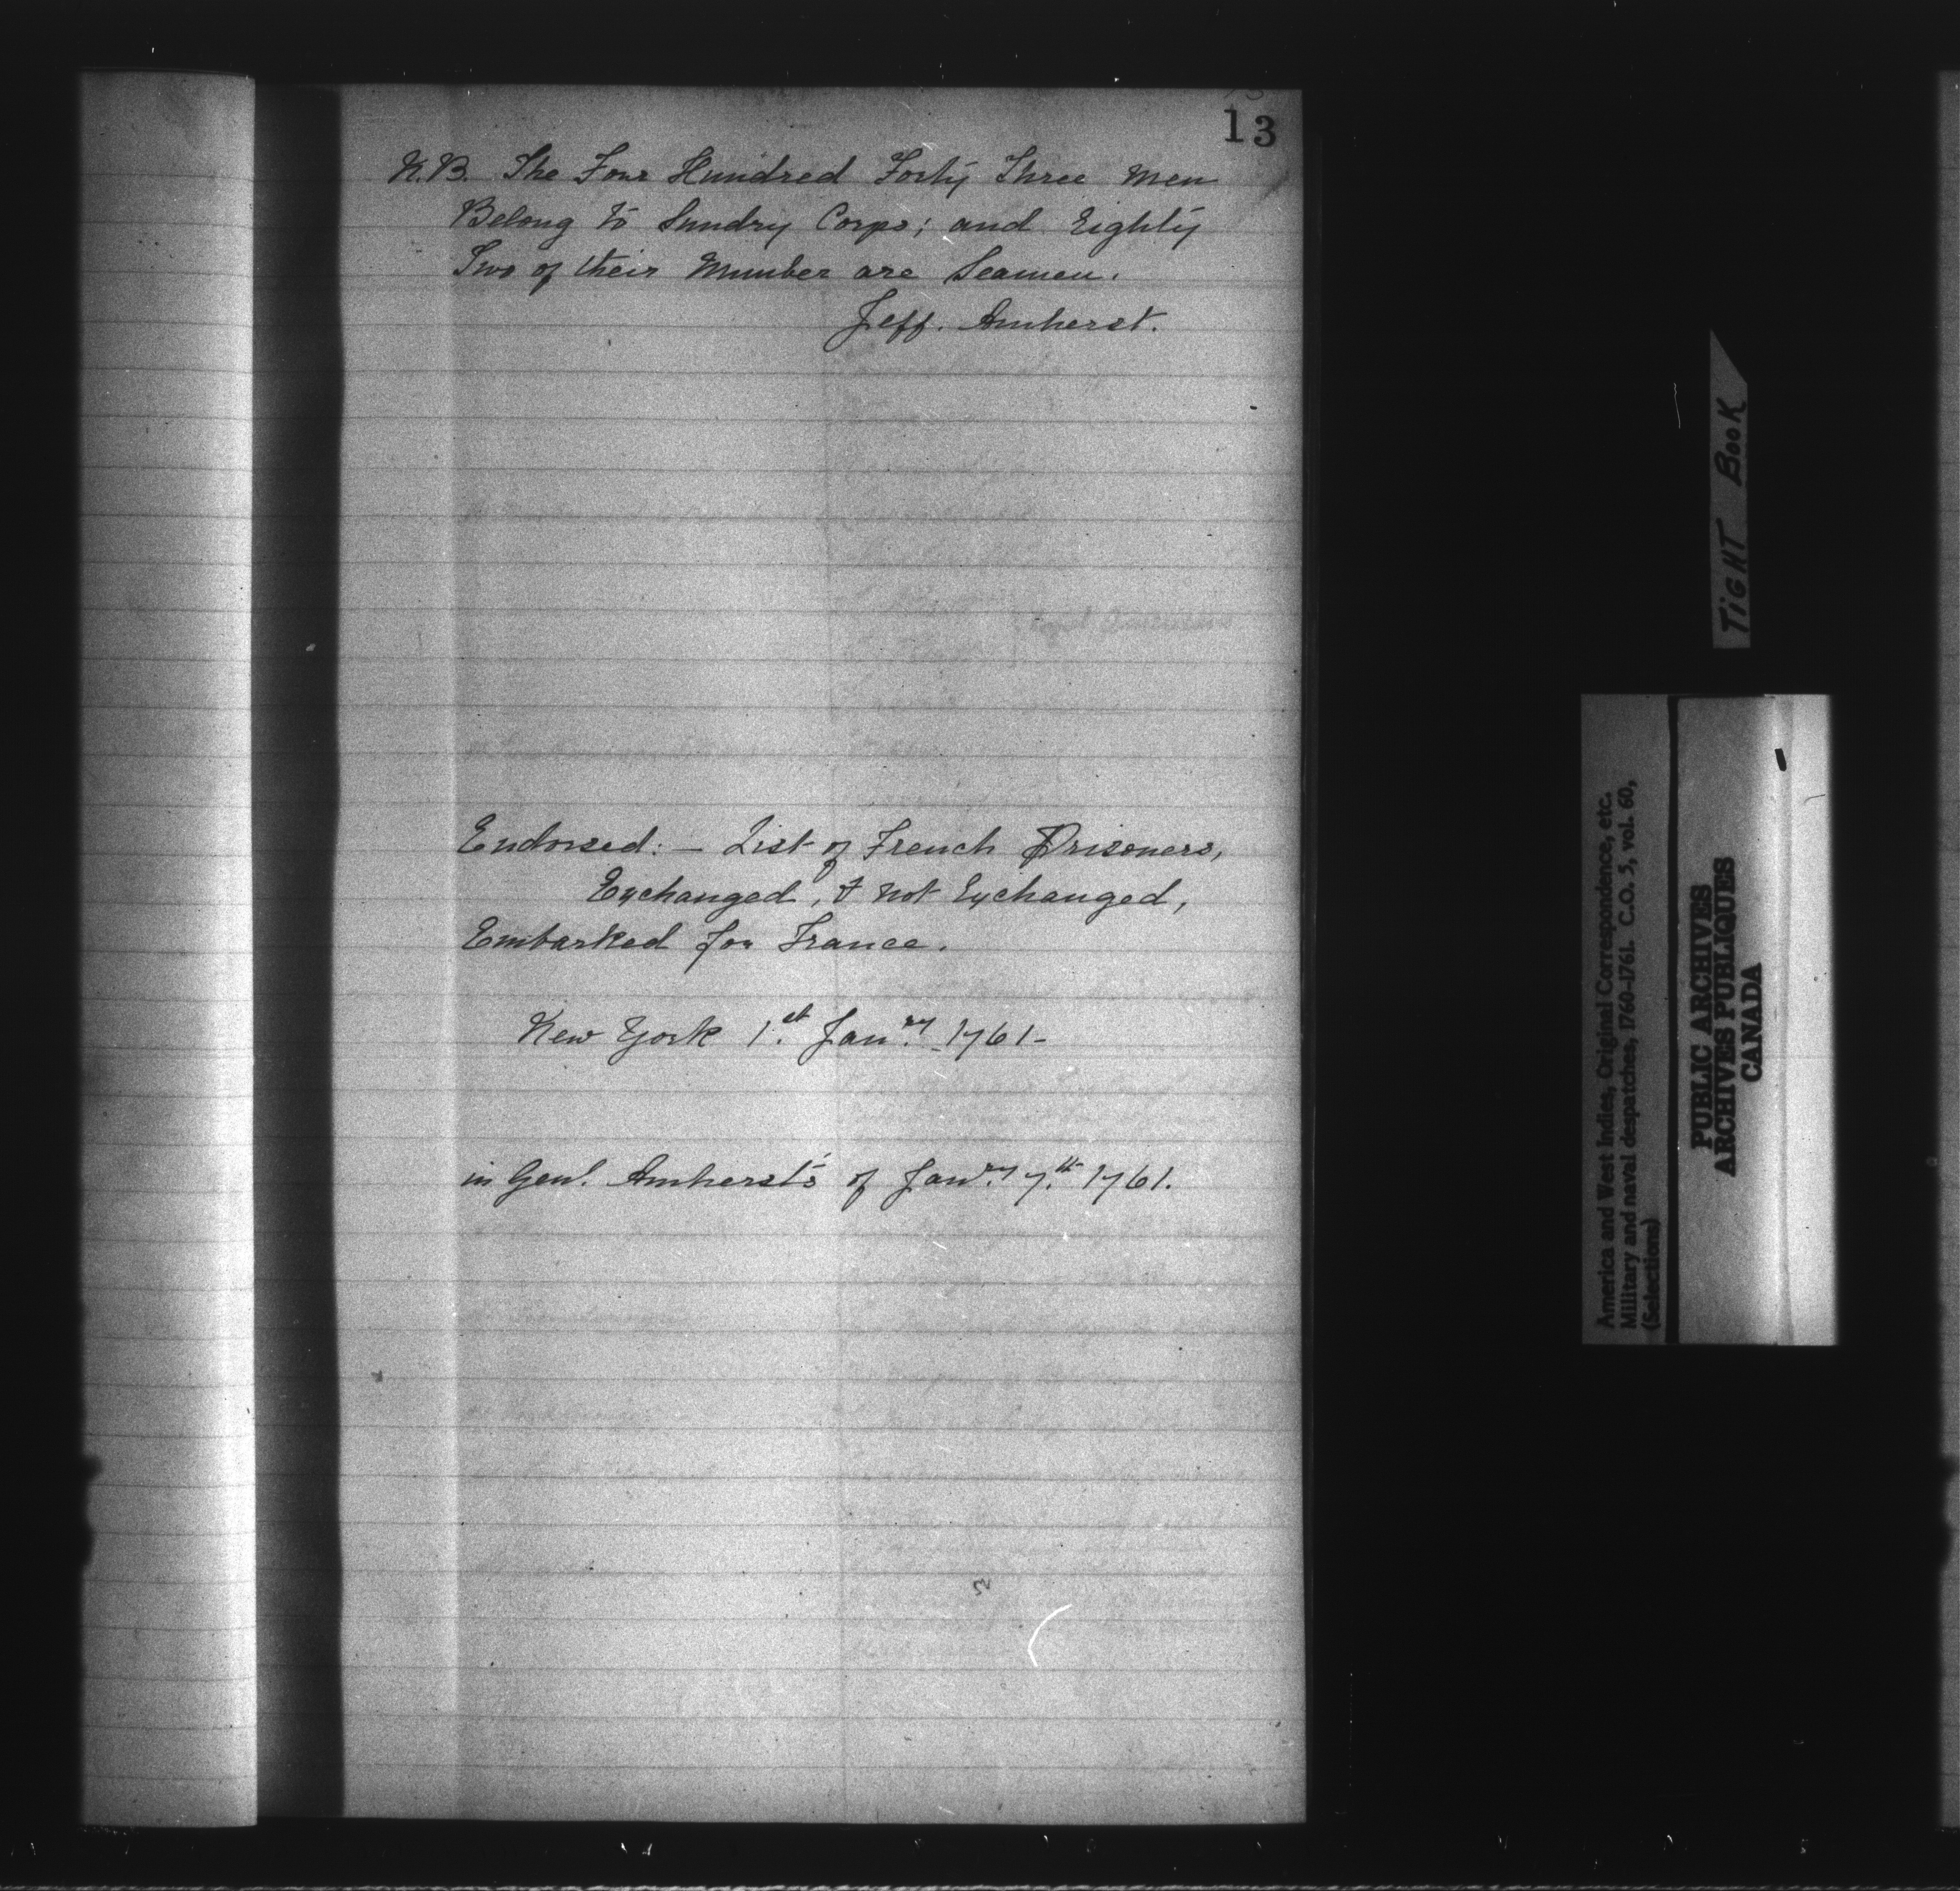 13
N.B. The Four Hundred Forty Three Men
Belong to Sundry Corps; and Eighty
Two of their Number are Seamen.
Jeff. Amherst.
Endorsed: — List of French Prisoners,
Exchanged, & not Exchanged,
Embarked for France.
New York 1st. Janry. 1761-
in Genl. Amherst's of Janry. 7th. 1761.
TIGHT BOOK
America and West Indies, Original Correspondence, etc.
Military and naval despatches, 1760-1761. C.O. 5, vol. 60,
(Selections)
PUBLIC ARCHIVES
ARCHIVES PUBLIQUES
CANADA